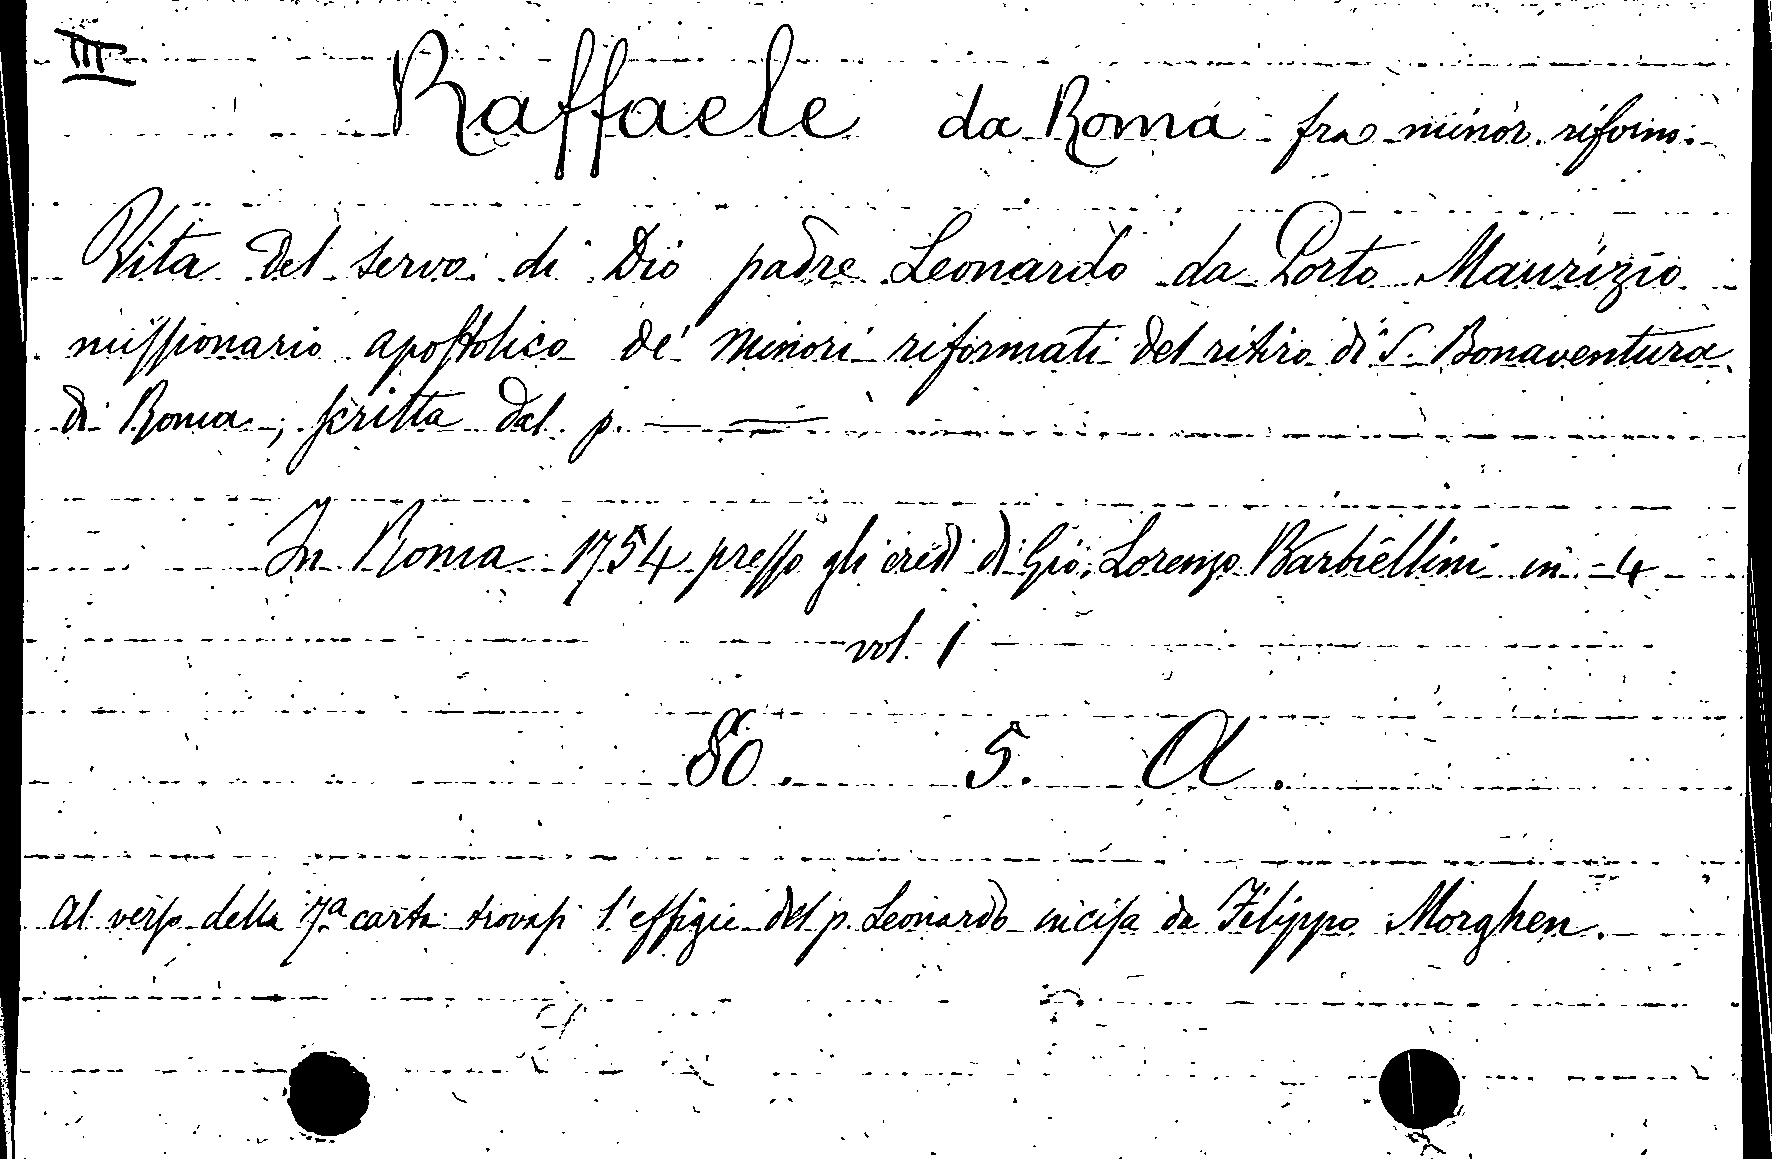 III
Raffaele da Roma fra minor. riform.
Vita del servo di Dio padre Leonardo da Porto Maurizio
missionario apostolico de' minori riformati del ritiro di S. Bonaventura
di Roma, scritta dal p. — —
In Roma 1754 presso gli eredi di Gio. Lorenzo Barbiellini in 4
vol. 1
80. 5. A.
Al verso della 7ª carta trovasi l'effigie del p. Leonardo incisa da Filippo Morghen.